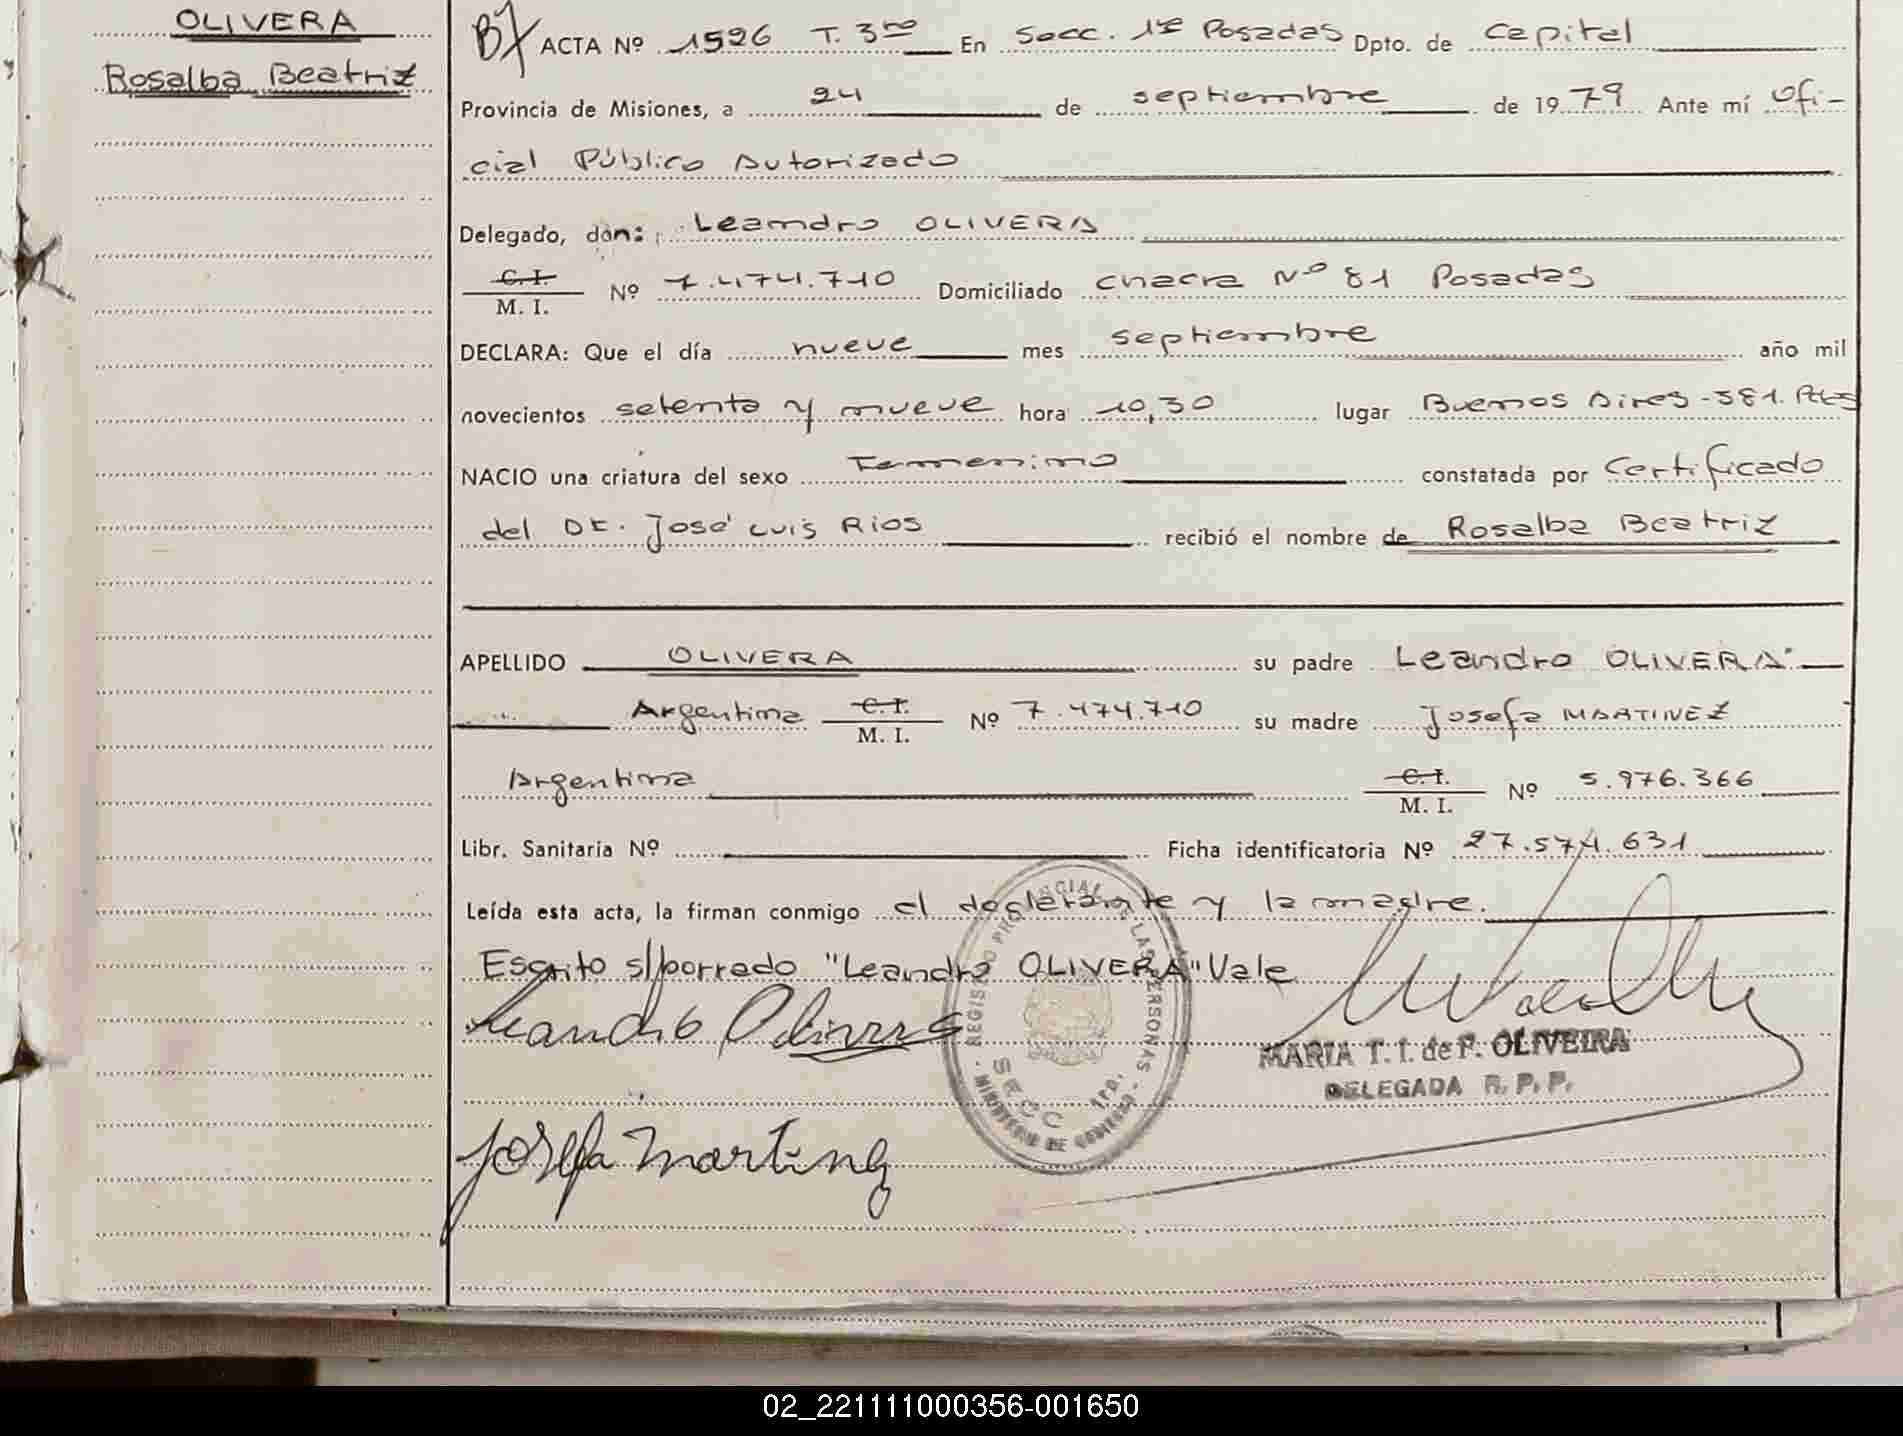 OLIVERA
Rosalba Beatriz
ACTA Nº 1526 T. 3ro En Secc. 1ra Posadas Dpto. de Capital
Provincia de Misiones, a 24 de septiembre de 1979 Ante mí Ofi-
cial Público Autorizado
Delegado, don: Leandro OLIVERA
C. I.
M. I. Nº 7.474.710 Domiciliado Chacra Nº 81 Posadas
DECLARA: Que el día nueve mes septiembre año mil
novecientos setenta y nueve hora 10,30 lugar Buenos Aires -381. Pdas
NACIO una criatura del sexo Femenino constatada por Certificado
del Dr. José Luis Rios recibió el nombre de Rosalba Beatriz
APELLIDO OLIVERA su padre Leandro OLIVERA
Argentina C. I. M. I. Nº 7.474.710 su madre Josefa MARTINEZ
Argentina C. I. M. I. Nº 5.976.366
Libr. Sanitaria Nº Ficha identificatoria Nº 27.574.631
Leída esta acta, la firman conmigo el declarante y la madre.
Escrito s/borrado "Leandro OLIVERA" Vale
Leandro Olivera
REGISTRO PROVINCIAL DE LAS PERSONAS
SECC. 1RA.
MINISTERIO DE GOBIERNO
MARIA T. I. de P. OLIVEIRA
DELEGADA R. P. P.
Josefa Martinez
02_221111000356-001650